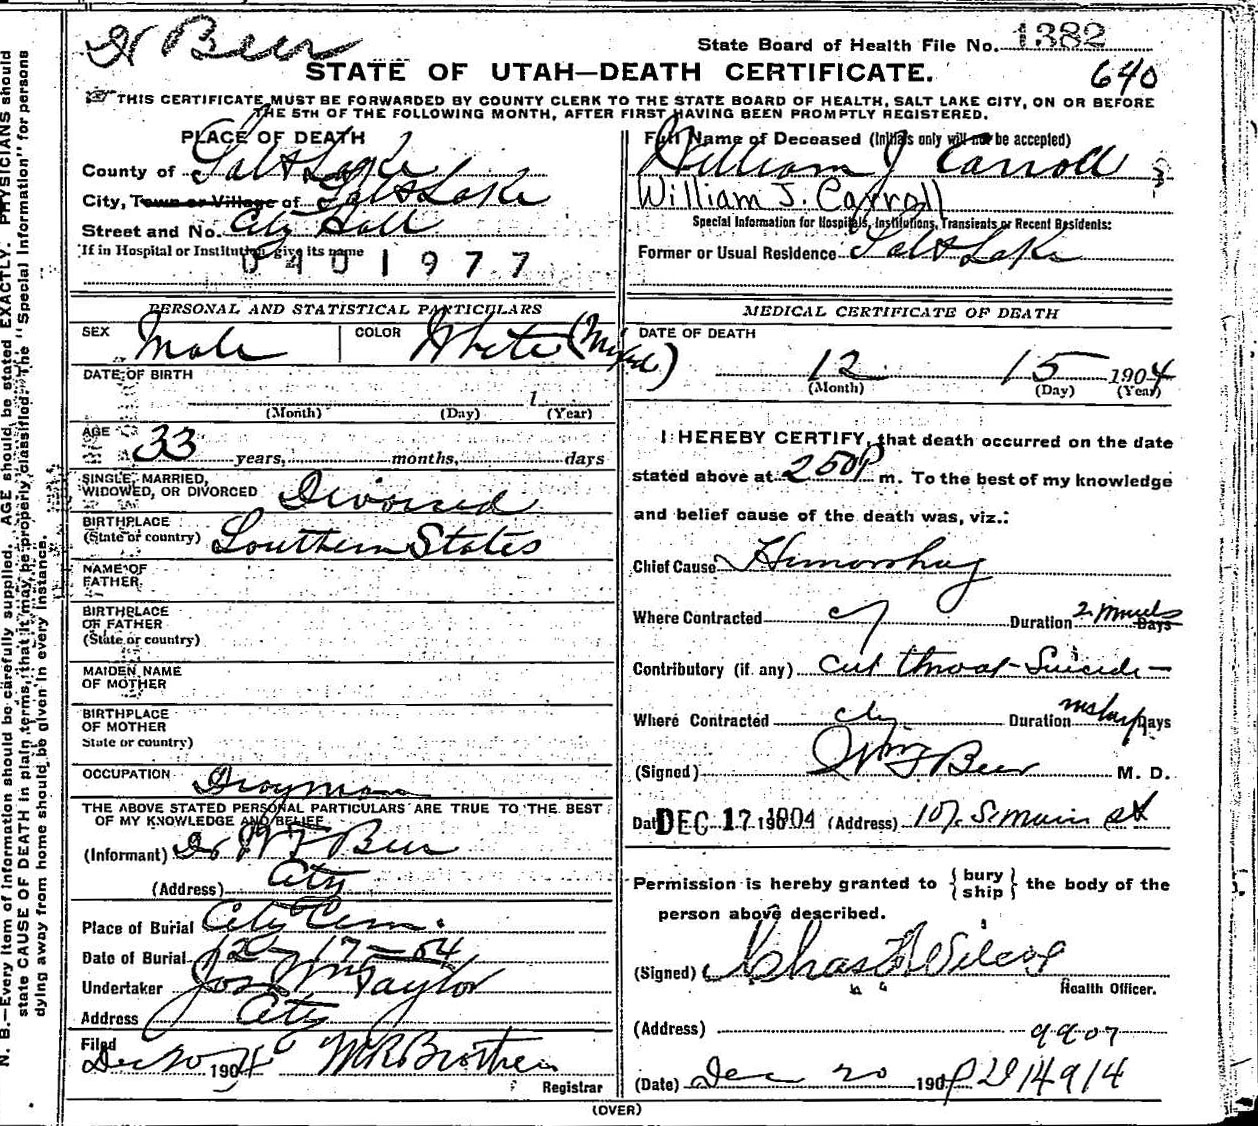 Dr Beer
State Board of Health File No. 1382
640
STATE OF UTAH—DEATH CERTIFICATE.
THIS CERTIFICATE MUST BE FORWARDED BY COUNTY CLERK TO THE STATE BOARD OF HEALTH, SALT LAKE CITY, ON OR BEFORE
THE 5TH OF THE FOLLOWING MONTH, AFTER FIRST HAVING BEEN PROMPTLY REGISTERED.
PLACE OF DEATH
County of Salt Lake
City, Town or Village of Salt Lake
Street and No. City Hall
If in Hospital or Institution, give its name
0401977
Full Name of Deceased (Initials only will not be accepted)
William J Carroll
William J. Carroll
Special Information for Hospitals, Institutions, Transients or Recent Residents:
Former or Usual Residence Salt Lake
PERSONAL AND STATISTICAL PARTICULARS
SEX Male COLOR White (Mixed)
DATE OF BIRTH
1
(Month) (Day) (Year)
AGE 33 years, months, days
SINGLE, MARRIED,
WIDOWED, OR DIVORCED Divorced
BIRTHPLACE
(State or country) Southern States
NAME OF
FATHER
BIRTHPLACE
OF FATHER
(State or country)
MAIDEN NAME
OF MOTHER
BIRTHPLACE
OF MOTHER
State or country)
OCCUPATION Drayman
THE ABOVE STATED PERSONAL PARTICULARS ARE TRUE TO THE BEST
OF MY KNOWLEDGE AND BELIEF
(Informant) Dr W F Beer
(Address) City
Place of Burial City Cem.
Date of Burial 12-17-04
Undertaker Jos Wm Taylor
Address City
Filed
Dec 20 1904 M R Brothers
Registrar
MEDICAL CERTIFICATE OF DEATH
DATE OF DEATH
12 15 1904
(Month) (Day) (Year)
I HEREBY CERTIFY, that death occurred on the date
stated above at 250P m. To the best of my knowledge
and belief cause of the death was, viz.:
Chief Cause Himorrhag
Where Contracted cy Duration 2 minuts Days
Contributory (if any) cut throat-Suicide-
Where Contracted city Duration Days
(Signed) Wm F Beer M. D.
Dat DEC 17 1904 (Address) 107. S. Main st
Permission is hereby granted to { bury ship } the body of the
person above described.
(Signed) Chas Wilcox
Health Officer.
(Address) 9907
(Date) Dec 20 190 14914
(OVER)
N. B.—Every item of information should be carefully supplied. AGE should be stated EXACTLY. PHYSICIANS should
state CAUSE OF DEATH in plain terms, that it may be properly classified. The "Special Information" for persons
dying away from home should be given in every instance.